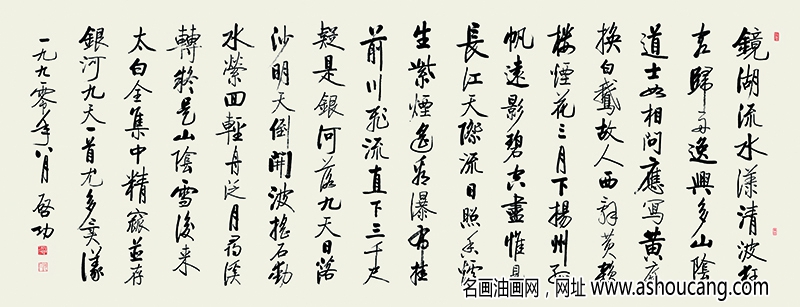 鏡湖流水漾清波狂
客歸舟逸興多山陰
道士如相問應寫黄庭
換白鵝故人西辭黄鶴
樓煙花三月下揚州孤
帆遠影碧空盡惟見
長江天際流日照香爐
生紫煙遙看瀑布掛
前川飛流直下三千尺
疑是銀河落九天日落
沙明天倒開波搖石動
水縈回輕舟泛月尋溪
轉疑是山陰雪後來
太白全集中精並存
銀河九天一首尤多漾
一九九零年八月 啓功
名画油画网，网址 www.ashoucang.com